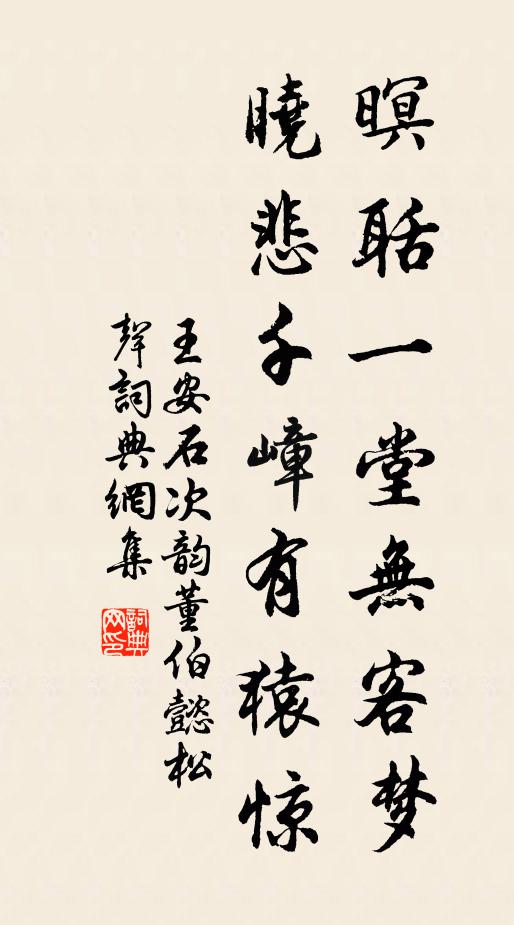 暝聒一堂無客梦
曉悲千嶂有猿惊
王安石次韵董伯懿松
聲詞典網集
詞典
网印